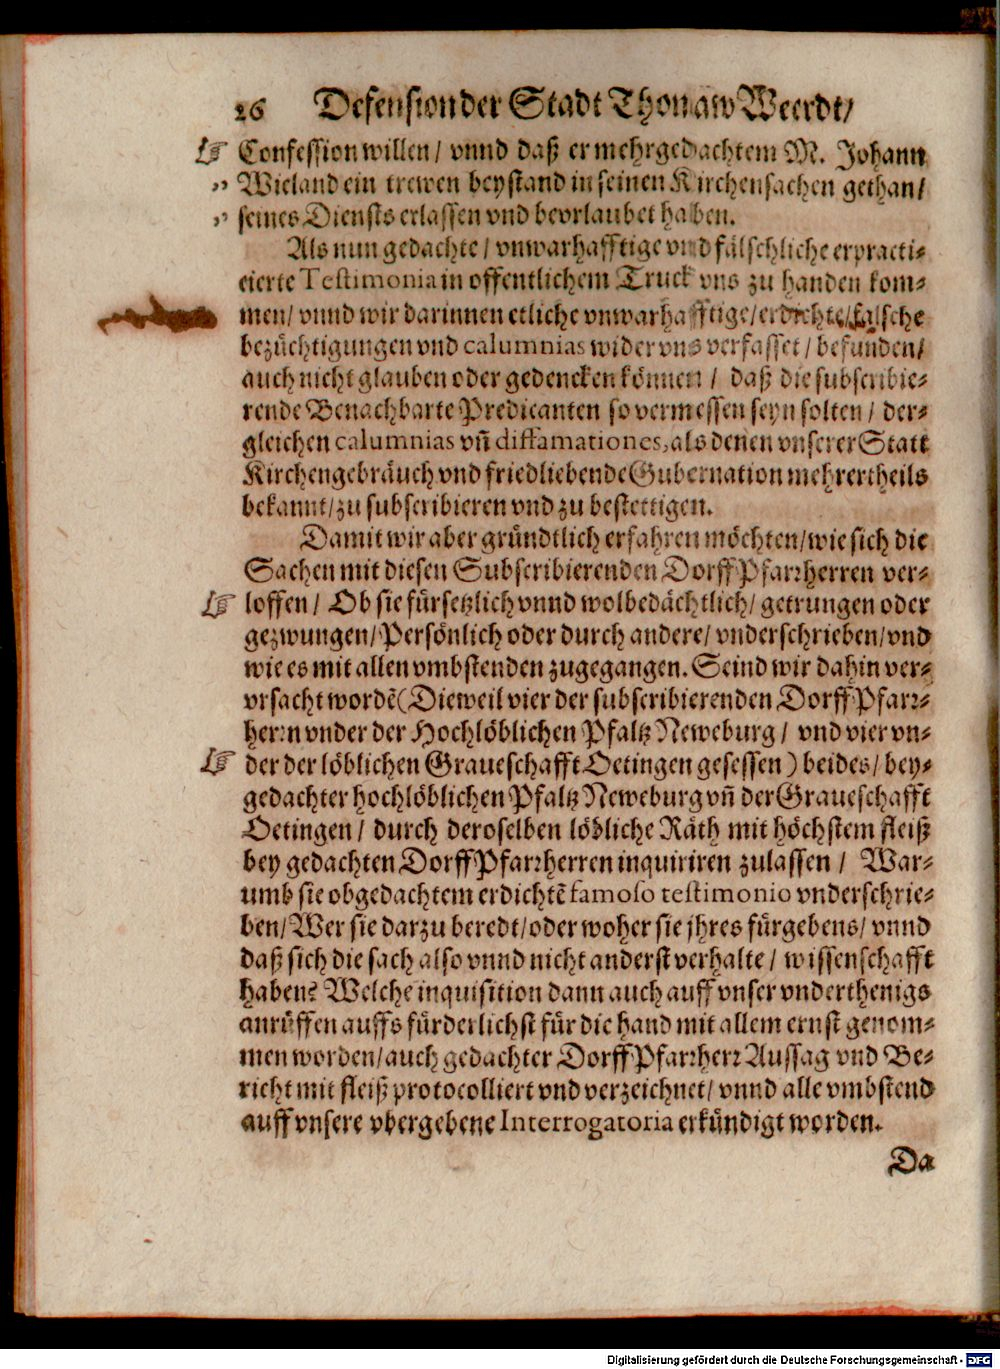 26 Defension der Stadt Thonaw Weerdt/
☞ Confession willen/ vnnd daß er mehrgedachtem M. Johann
„ Wieland ein trewen beystand in seinen Kirchensachen gethan/
„ seines Diensts erlassen vnd bevrlaubet haben.
Als nun gedachte/ vnwarhafftige vnd fälschliche erpracti-
cierte Testimonia in offentlichem Truck vns zu handen kom-
men/ vnnd wir darinnen etliche vnwarhafftige/ erdichte/ falsche
bezüchtigungen vnd calumnias wider vns verfasset/ befunden/
auch nicht glauben oder gedencken können/ daß die subscribie-
rende Benachbarte Predicanten so vermessen seyn solten/ der-
gleichen calumnias vñ diffamationes, als denen vnserer Statt
Kirchengebräuch vnd friedliebende Gubernation mehrertheils
bekannt/ zu subscribieren vnd zu bestettigen.
Damit wir aber gründtlich erfahren möchten/ wie sich die
Sachen mit diesen Subscribierenden Dorff Pfarrherren ver-
☞ loffen/ Ob sie fürsetzlich vnnd wolbedächtlich/ getrungen oder
gezwungen/ Persönlich oder durch andere/ vnderschrieben/ vnd
wie es mit allen vmbstenden zugegangen. Seind wir dahin ver-
vrsacht wordẽ (Dieweil vier der subscribierenden Dorff Pfarr-
herrn vnder der Hochlöblichen Pfaltz Neweburg/ vnd vier vn-
☞ der der löblichen Graueschafft Oetingen gesessen) beides/ bey-
gedachter hochlöblichen Pfaltz Neweburg vñ der Graueschafft
Oetingen/ durch deroselben löbliche Räth mit höchstem fleiß
bey gedachten Dorff Pfarrherren inquiriren zulassen/ War-
umb sie obgedachtem erdichtẽ famoso testimonio vnderschrie-
ben/ Wer sie darzu beredt/ oder woher sie jhres fürgebens/ vnnd
daß sich die sach also vnnd nicht anderst verhalte/ wissenschafft
haben? Welche inquisition dann auch auff vnser vnderthenigs
anrüffen auffs fürderlichst für die hand mit allem ernst genom-
men worden/ auch gedachter Dorff Pfarrherr Aussag vnd Be-
richt mit fleiß protocolliert vnd verzeichnet/ vnnd alle vmbstend
auff vnsere vbergebene Interrogatoria erkündigt worden.
Da
Digitalisierung gefördert durch die Deutsche Forschungsgemeinschaft - DFG